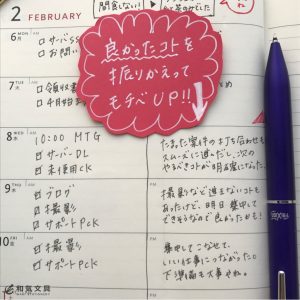 2 FEBRUARY
間食しない!
6 月
□サーバSS
□お問い
7 火
□領収書
□4月始ま
良かったコトを
振りかえって
モチベUP!!
8 水
10:00 MTG
☑サーバーDL
☑未使用ck
たまった案件の打ち合わせも
スムーズに進んだし、次の
やるべきコトが明確になった。
9 木
☑ブログ
☑撮影
☑サポートPCK
撮影など進まないコトも
あったけど、明日集中して
できそうなので良かったかも!
10 金
☑撮影
☑サポートPCK
集中してこなせて、
いい仕事につながった。
準備も大事やね。
和気文具